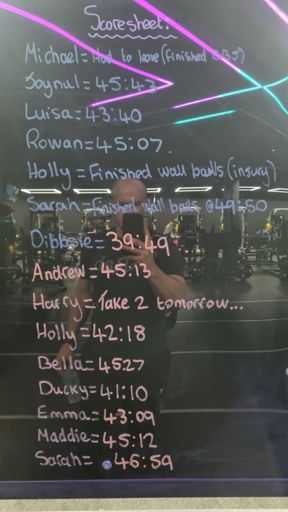 Scoresheet.
Michael= Had to leave (Finished BBJ)
Joynul= 45:43
Luisa= 43:40
Rowan= 45:07
Holly = Finished wall balls (insury)
Sarah = Finished wall balls @49:50
Dibbsie= 39:49
Andrew= 45:13
Harry= Take 2 tomorrow...
Holly= 42:18
Bella= 45:27
Ducky= 41:10
Emma= 43:09
Maddie= 45:12
Sarah= 46:59